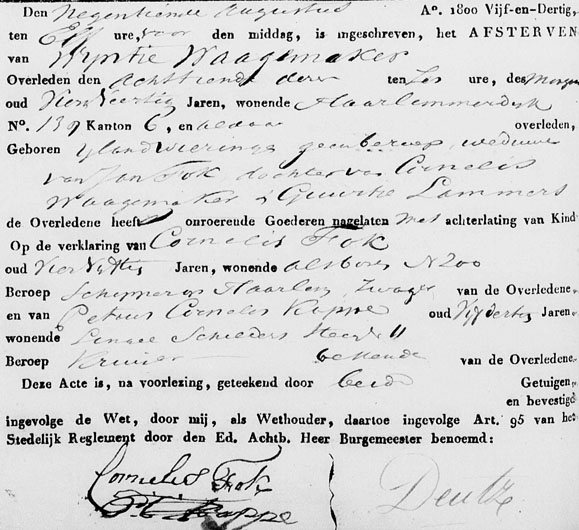 Den Negentiende Augustus Aº. 1800 Vijf-en-Dertig,
ten Elf ure, voor den middag, is ingeschreven, het AFSTERVEN
van Wyntie Waagemaker
Overleden den Achttiende dezer ten Zes ure, des Morgen
oud Vier Veertig Jaren, wonende Haarlemmerdyk
Nº. 139 Kanton 6, en aldaar overleden,
Geboren Yland Wieringe geen beroep, weduwe
van Jan Fok dochter van Cornelis
Waagemaker & Guurtie Lammers
de Overledene heeft onroerende Goederen nagelaten met achterlating van Kind
Op de verklaring van Cornelis Fok
oud Vier Vyftig Jaren, wonende als boven N 200
Beroep Schipper op Haarlem Zwager van de Overledene
en van Petrus Cornelis Kappe oud Vijf dertig Jaren
wonende Lange Schilders Steeg 11
Beroep Kruier bekende van de Overledene
Deze Acte is, na voorlezing, geteekend door beide Getuigen,
en bevestigd
ingevolge de Wet, door mij, als Wethouder, daartoe ingevolge Art. 95 van het
Stedelijk Reglement door den Ed. Achtb. Heer Burgemeester benoemd:
Cornelis Fok
Kappe
Deutz